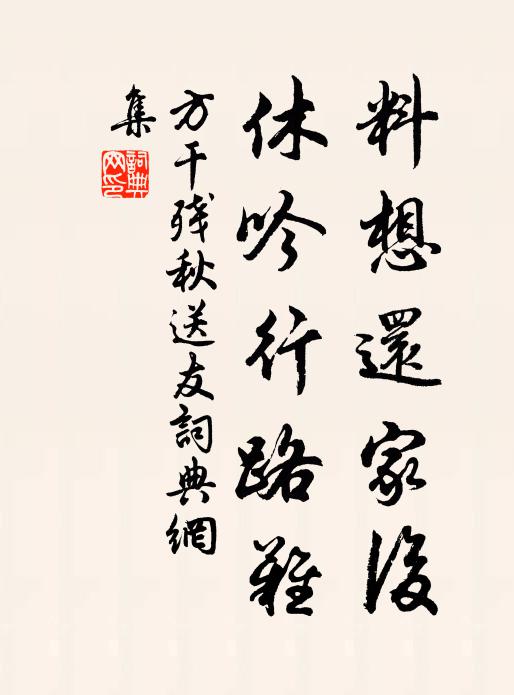 料想還家後
休吟行路難
方干殘秋送友詞典網
集
詞典
網印